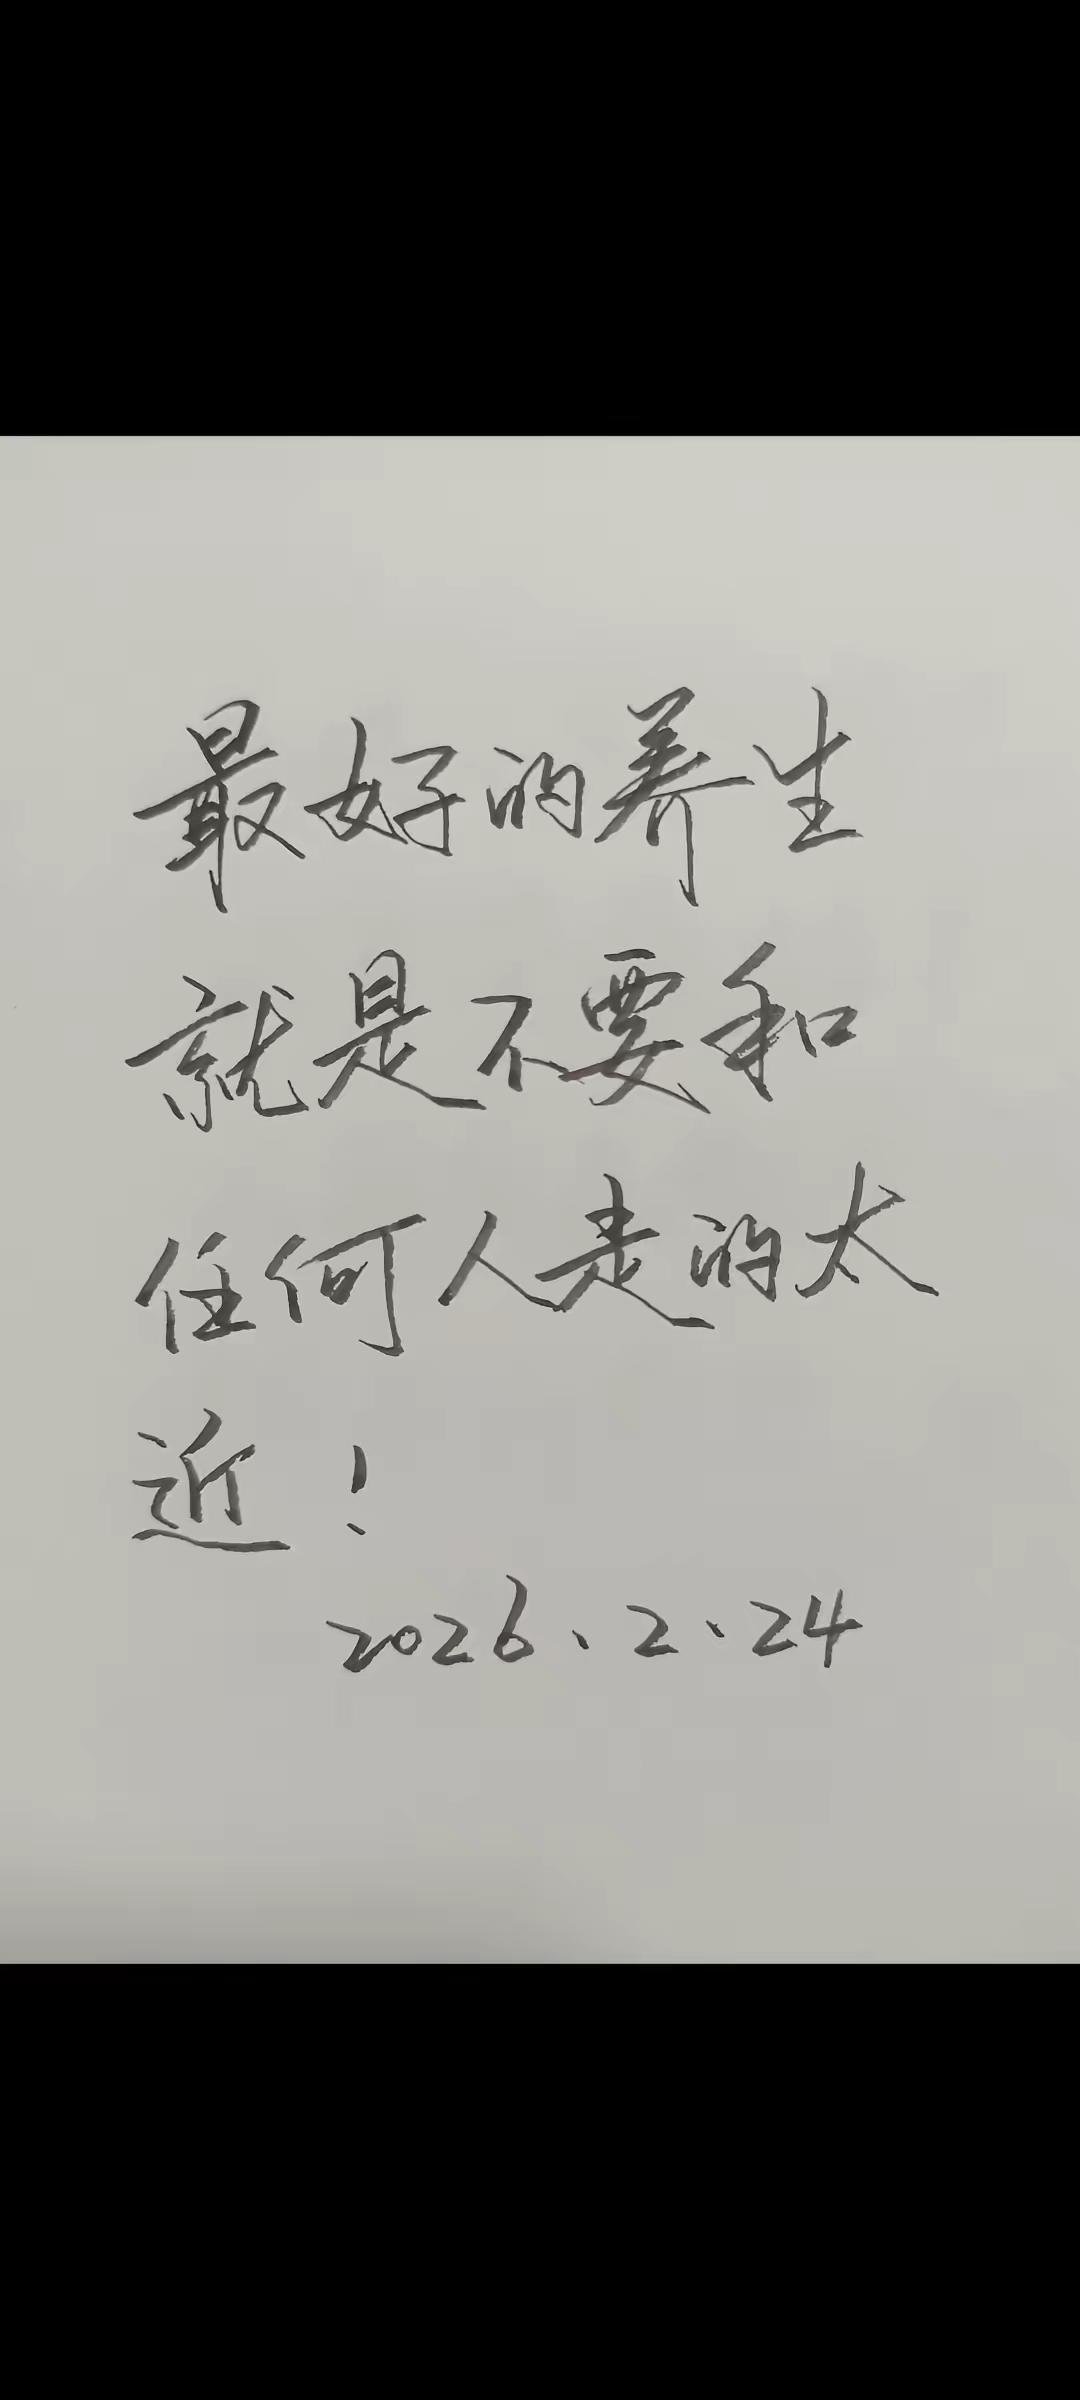 最好的养生
就是不要和
任何人走的太
近！
2026、2、24